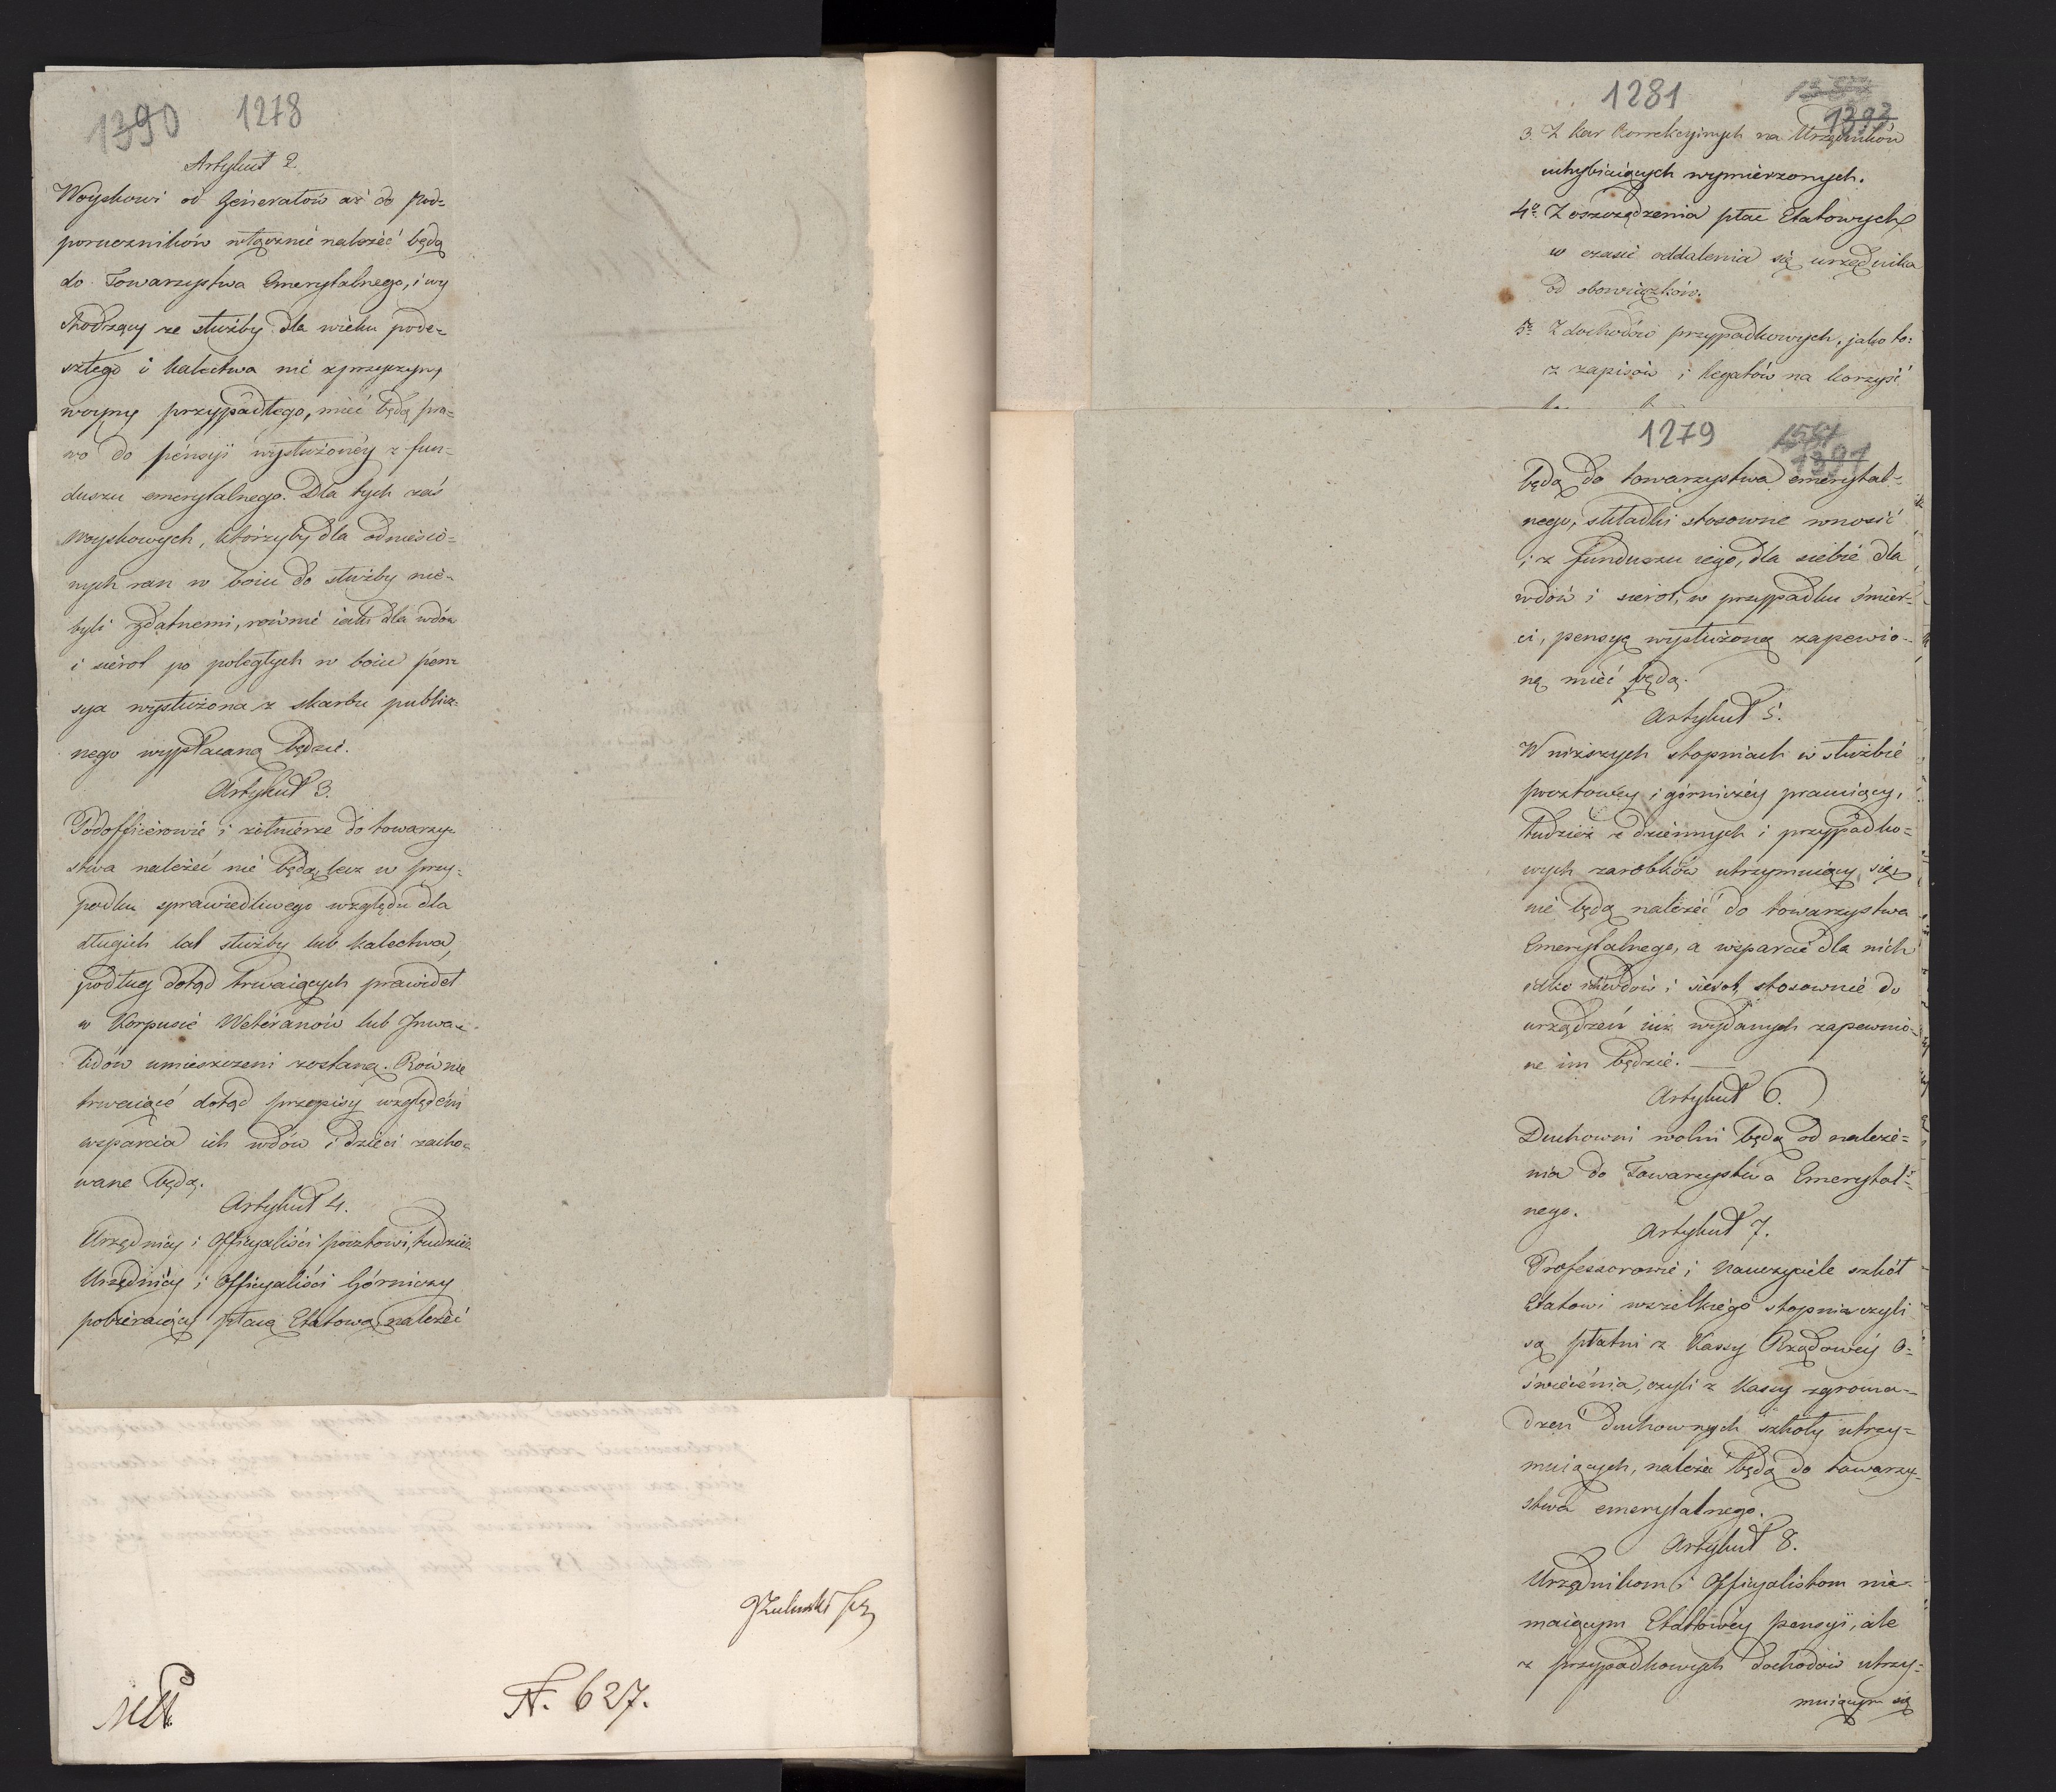 1390 1278
Artykuł 2.
Woyskowi od Generałów aż do Pod=
poruczników włącznie należéć będą
do Towarzystwa Emerytalnego, i wy
chodzący ze służby dla wieku pode=
szłego i kalectwa nie z przyczyny
woyny przypadłego, mieć będą pra=
wo do pensyi wysłużonéy z fun=
duszu emerytalnego. Dla tych zaś
woyskowych, którzyby dla odniesio=
nych ran w boiu do służby nie=
byli zdatnemi, równie iak dla wdów
i sierot po poległych w boiu pen=
sya wysłużona z skarbu publicz=
nego wypłacaną będzie.
Artykuł 3.
Podofficerowie i żołnierze do towarzy=
stwa należeć nie będą, lecz w przy=
padku sprawiedliwego względu dla
długich lat służby lub kalectwa,
podług dotąd trwaiących prawideł
w Korpusie Weteranów lub Inwa=
lidów umieszczeni zostaną. Równie
trwaiące dotąd przepisy względem
wsparcia ich wdów i dzieci zacho=
wane będą.
Artykuł 4.
Urzędnicy i Officyaliści pocztowi, tudzież
Urzędnicy i Officyaliści Górniczy
pobieraiący płacą Etatową należéć
N. 627.
1281 1393
3. Z kar korrekcyinych na Urzędników
uchybiaiących wymierzonych.
4o Z oszczędzenia płac Etatowych
w czasie oddalenia się urzędnika
od obowiązków.
5o Z dochodów przypadkowych, jako to:
z zapisów i legatów na korzyść
1279 1391
będą do towarzystwa emerytal=
nego, składki stosowne wnosić
i z funduszu iego, dla siebie dla
wdów i sierot, w przypadku śmier=
ci, pensyą wysłużoną zapewnio=
ną mieć będą.
Artykuł 5.
W niższych stopniach w służbie
pocztowey i górniczéy pracuiący,
tudzież z dziennych i przypadko=
wych zarobków utrzymuiący się,
nie będą należéć do towarzystwa
Emerytalnego, a wsparcie dla nich
i sierot, stosownie do
urządzeń iuż wydanych zapewnio=
ne im będzie.
Artykuł 6.
Duchowni wolni będą od należe=
nia do Towarzystwa Emerytal=
nego.
Artykuł 7.
Professorowie i Nauczyciele szkół
Etatowi wszelkiego stopnia czyli
są płatni z Kassy Rządowéy O=
świecenia, czyli z Kassy zgroma=
dzeń duchownych szkoły utrzy=
muiących, należeć będą do towarzy=
stwa emerytalnego.
Artykuł 8.
Urzędnikom i Officyalistom nie
maiącym Etatowéy pensyi, ale
z przypadkowych dochodów utrzy=
muiącym się